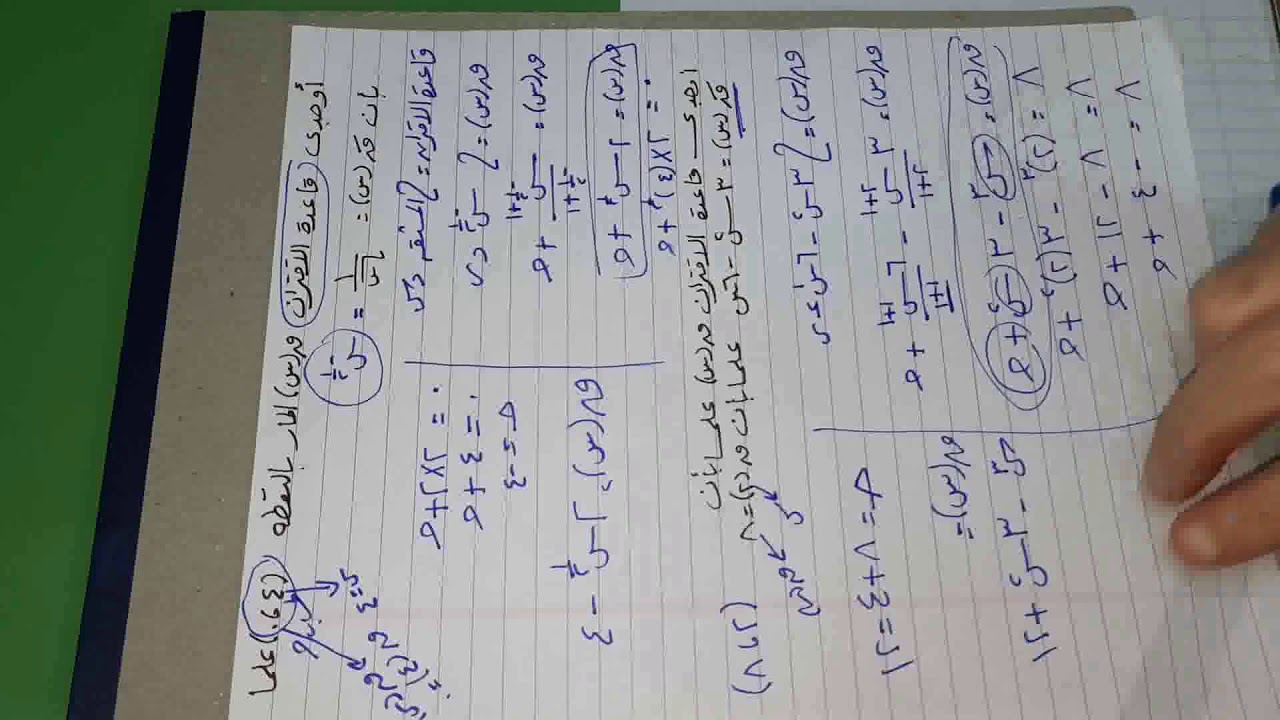 أوجدي قاعدة الاقتران ق(س) المار بالنقطة (٤،٠) علما
بأن قَ(س) = ١/√س = س^-١/٢
قاعدة الاقتران = ∫ المشتقة دس
ق(س) = ∫ س^-١/٢ دس
ق(س) = س^(-١/٢+١) / (-١/٢+١) + جـ
ق(س) = ٢ س^١/٢ + جـ
٠ = ٢×(٤)^١/٢ + جـ
٠ = ٢×٢ + جـ
٠ = ٤ + جـ
جـ = -٤
ق(س) = ٢ س^١/٢ - ٤
اوجدي قاعدة الاقتران ق(س) علما بأن
قَ(س) = ٣س٢ - ٦س علما بأن ق(٢) = ٨
(٢،٨)
ق(س) = ∫ ٣س٢ - ٦س دس
ق(س) = ٣ س^(٢+١) / (٢+١) - ٦ س^(١+١) / (١+١) + جـ
ق(س) = س٣ - ٣س٢ + جـ
٨ = (٢)٣ - ٣(٢)٢ + جـ
٨ = ٨ - ١٢ + جـ
٨ = -٤ + جـ
جـ = ٨ + ٤ = ١٢
ق(س) =
س٣ - ٣س٢ + ١٢